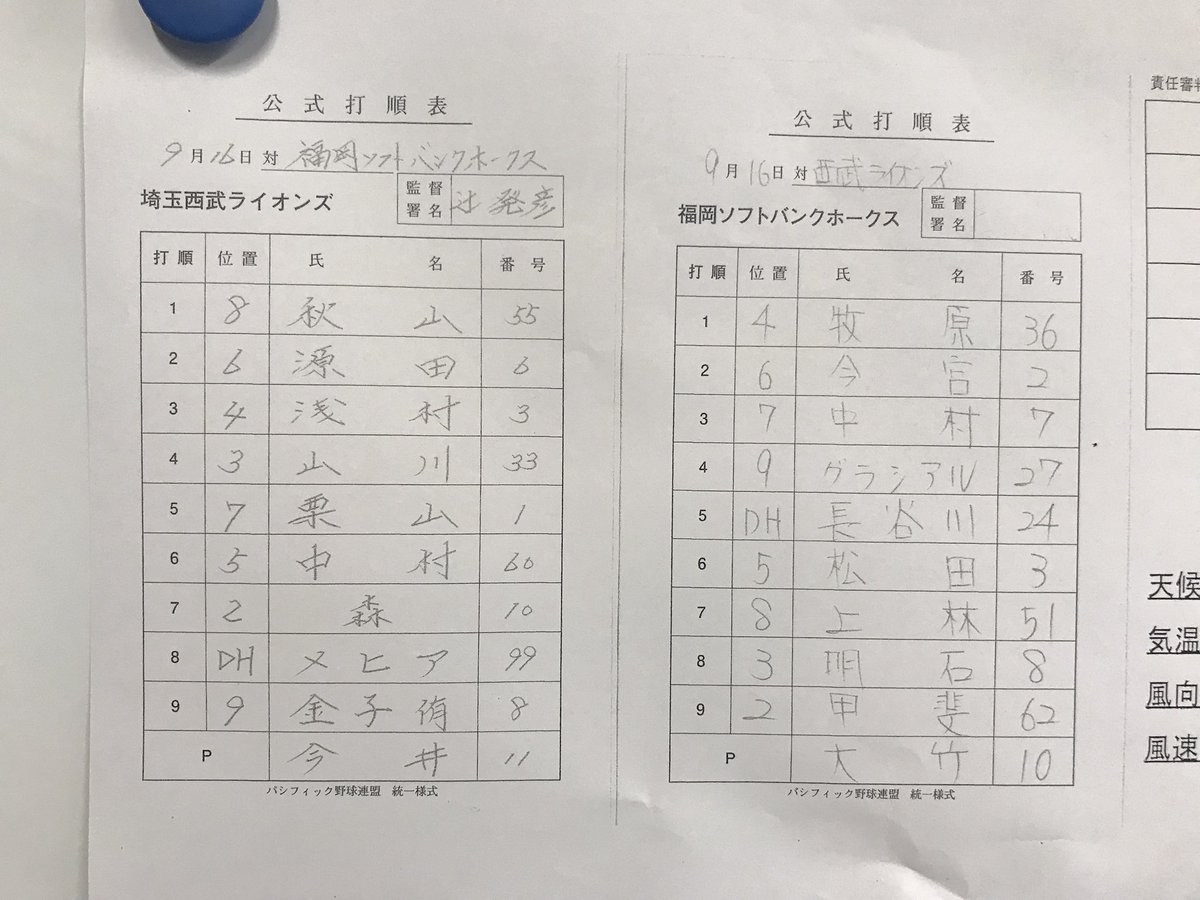 公式打順表
9月16日対 福岡ソフトバンクホークス
埼玉西武ライオンズ 監督署名 辻発彦
打順 位置 氏名 番号
1 8 秋山 55
2 6 源田 6
3 4 浅村 3
4 3 山川 33
5 7 栗山 1
6 5 中村 60
7 2 森 10
8 DH メヒア 99
9 9 金子侑 8
P 今井 11
パシフィック野球連盟 統一様式
公式打順表
9月16日対 西武ライオンズ
福岡ソフトバンクホークス 監督署名
打順 位置 氏名 番号
1 4 牧原 36
2 6 今宮 2
3 7 中村 7
4 9 グラシアル 27
5 DH 長谷川 24
6 5 松田 3
7 8 上林 51
8 3 明石 8
9 2 甲斐 62
P 大竹 10
パシフィック野球連盟 統一様式
責任審判
天候
気温
風向
風速